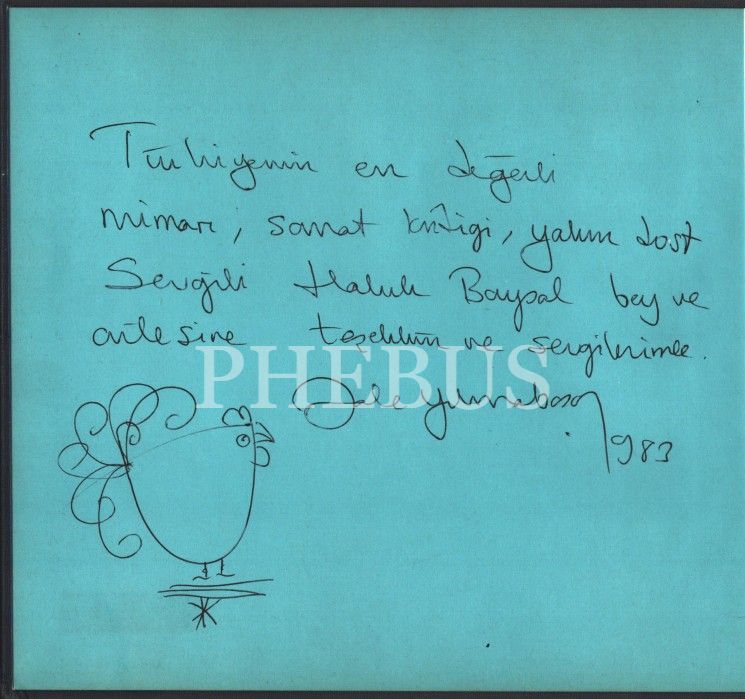 Türkiyenin en değerli
mimarı, sanat kritiği, yakın dost
Sevgili Haluk Baysal bey ve
ailesine teşekkür ve sevgilerimle.
PHEBUS
Jale Yılmabaşar
1983